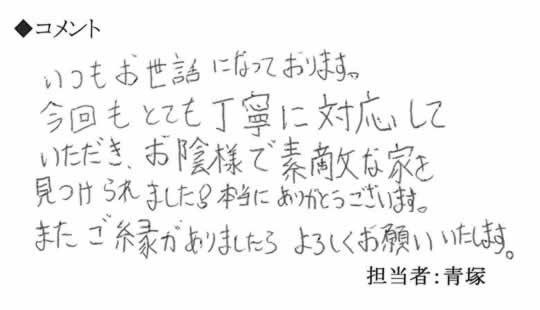 ◆コメント
いつもお世話になっております。
今回もとても丁寧に対応して
いただき、お陰様で素敵な家を
見つけられました!本当にありがとうございます。
またご縁がありましたらよろしくお願いいたします。
担当者:青塚